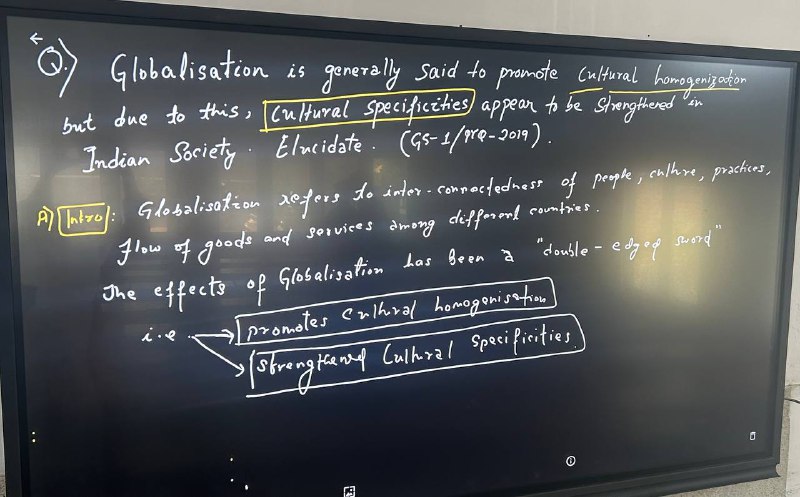 Q.) Globalisation is generally said to promote Cultural homogenization
but due to this, Cultural Specificities appear to be Strengthened in
Indian Society. Elucidate. (GS-1/PYQ-2019).
A) Intro: Globalisation refers to inter-connectedness of people, culture, practices,
flow of goods and services among different countries.
The effects of Globalisation has been a "double-edged sword"
i.e. promotes Cultural homogenisation
strengthened Cultural Specificities.